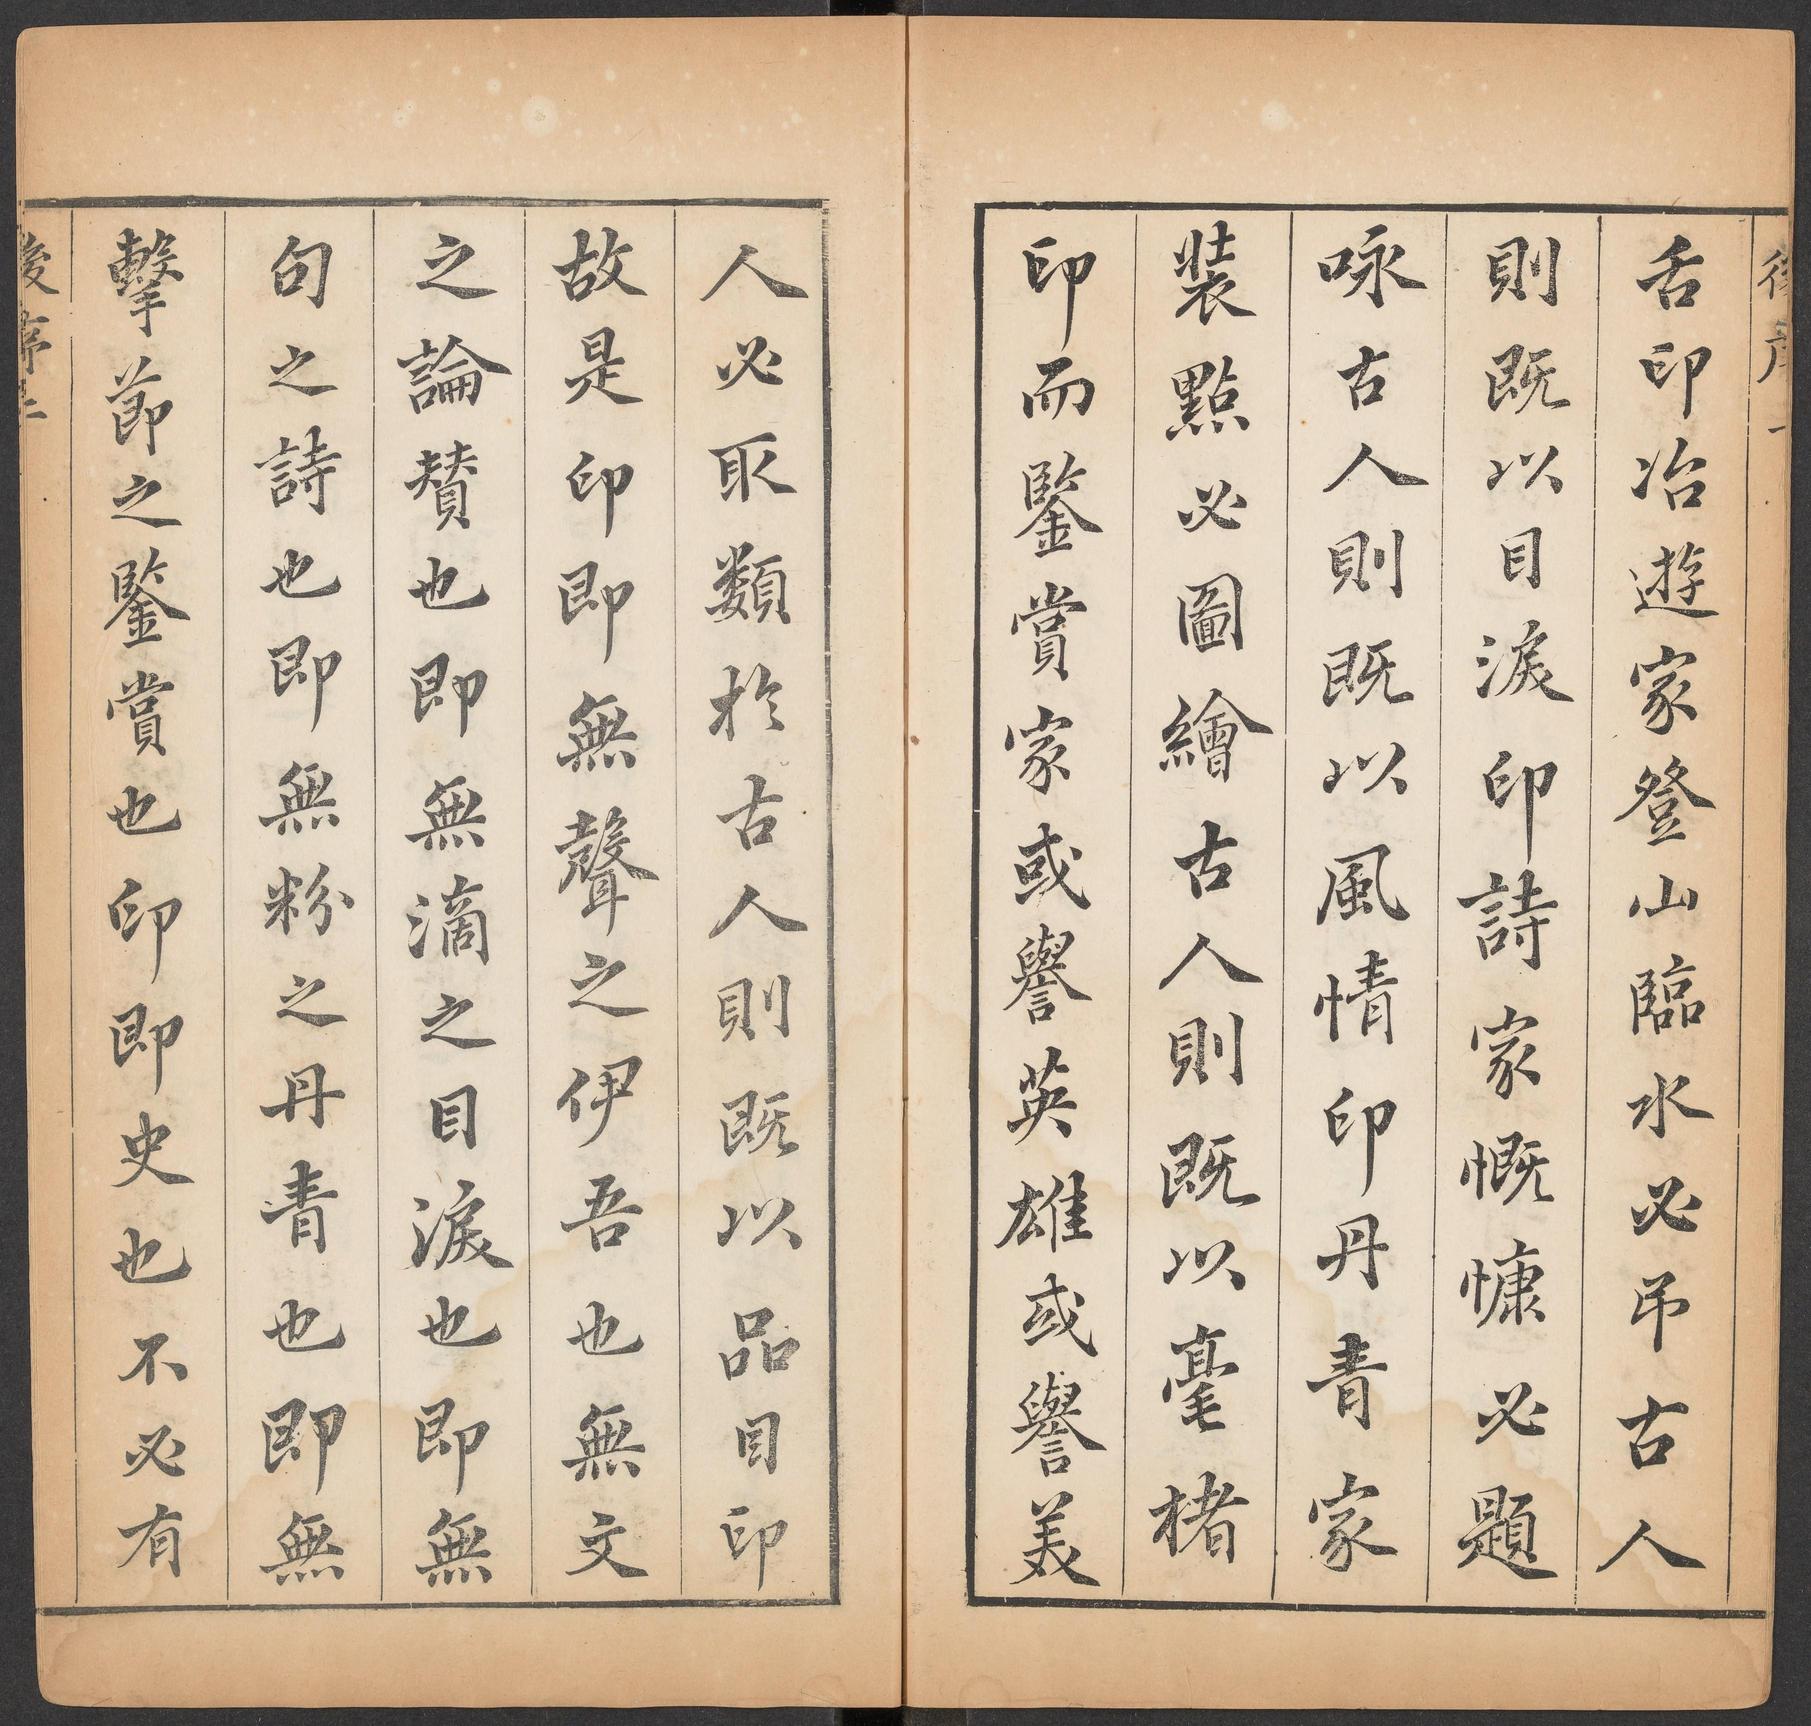 舌印冶遊家登山臨水必吊古人
則既以目淚印詩家慨慷必題
咏古人則既以風情印丹青家
裝點必圖繪古人則既以毫楮
印而鑒賞家或譽英雄或譽美
人必取類於古人則既以品目印
故是印即無聲之伊吾也無文
之論贊也即無滴之目淚也即無
句之詩也即無粉之丹青也即無
擊節之鑒賞也印即史也不必有
後序